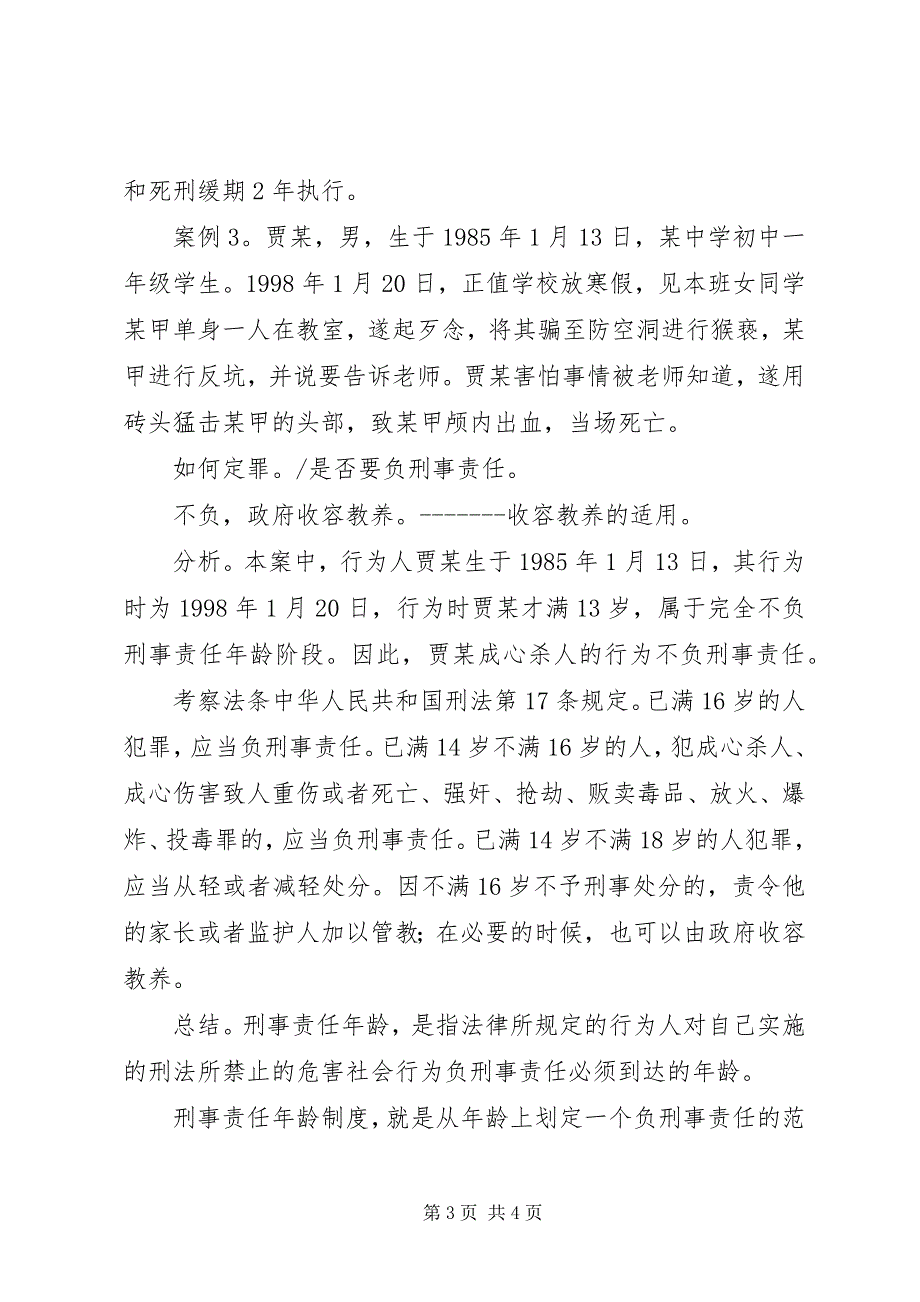 和死刑缓期 2 年执行。
案例 3。贾某，男，生于 1985 年 1 月 13 日，某中学初中一
年级学生。1998 年 1 月 20 日，正值学校放寒假，见本班女同学
某甲单身一人在教室，遂起歹念，将其骗至防空洞进行猴亵，某
甲进行反坑，并说要告诉老师。贾某害怕事情被老师知道，遂用
砖头猛击某甲的头部，致某甲颅内出血，当场死亡。
如何定罪。/是否要负刑事责任。
不负，政府收容教养。-------收容教养的适用。
分析。本案中，行为人贾某生于 1985 年 1 月 13 日，其行为
时为 1998 年 1 月 20 日，行为时贾某才满 13 岁，属于完全不负
刑事责任年龄阶段。因此，贾某成心杀人的行为不负刑事责任。
考察法条中华人民共和国刑法第 17 条规定。已满 16 岁的人
犯罪，应当负刑事责任。已满 14 岁不满 16 岁的人，犯成心杀人、
成心伤害致人重伤或者死亡、强奸、抢劫、贩卖毒品、放火、爆
炸、投毒罪的，应当负刑事责任。已满 14 岁不满 18 岁的人犯罪，
应当从轻或者减轻处分。因不满 16 岁不予刑事处分的，责令他
的家长或者监护人加以管教；在必要的时候，也可以由政府收容
教养。
总结。刑事责任年龄，是指法律所规定的行为人对自己实施
的刑法所禁止的危害社会行为负刑事责任必须到达的年龄。
刑事责任年龄制度，就是从年龄上划定一个负刑事责任的范
第 3 页 共 4 页